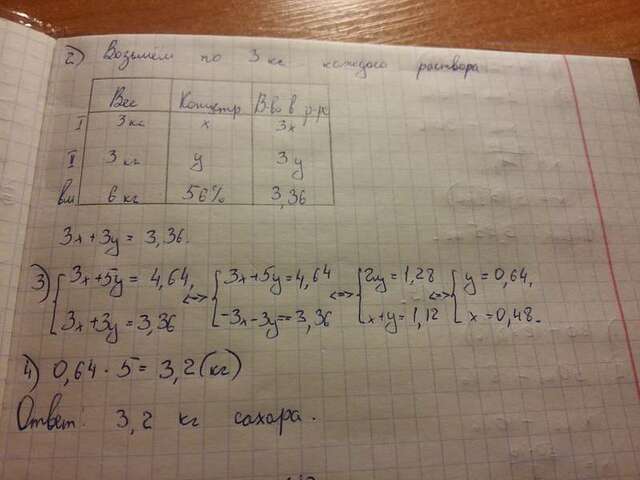 2) Возьмём по 3 кг каждого раствора
Вес Концтр В-во в р-ре
I 3 кг x 3x
II 3 кг y 3y
вм 6 кг 56% 3,36
3x + 3y = 3,36.
3) { 3x + 5y = 4,64, <=> { 3x + 5y = 4,64 <=> { 2y = 1,28 <=> { y = 0,64,
3x + 3y = 3,36 -3x - 3y = -3,36 x + y = 1,12 x = 0,48.
4) 0,64 · 5 = 3,2 (кг)
Ответ: 3,2 кг сахара.